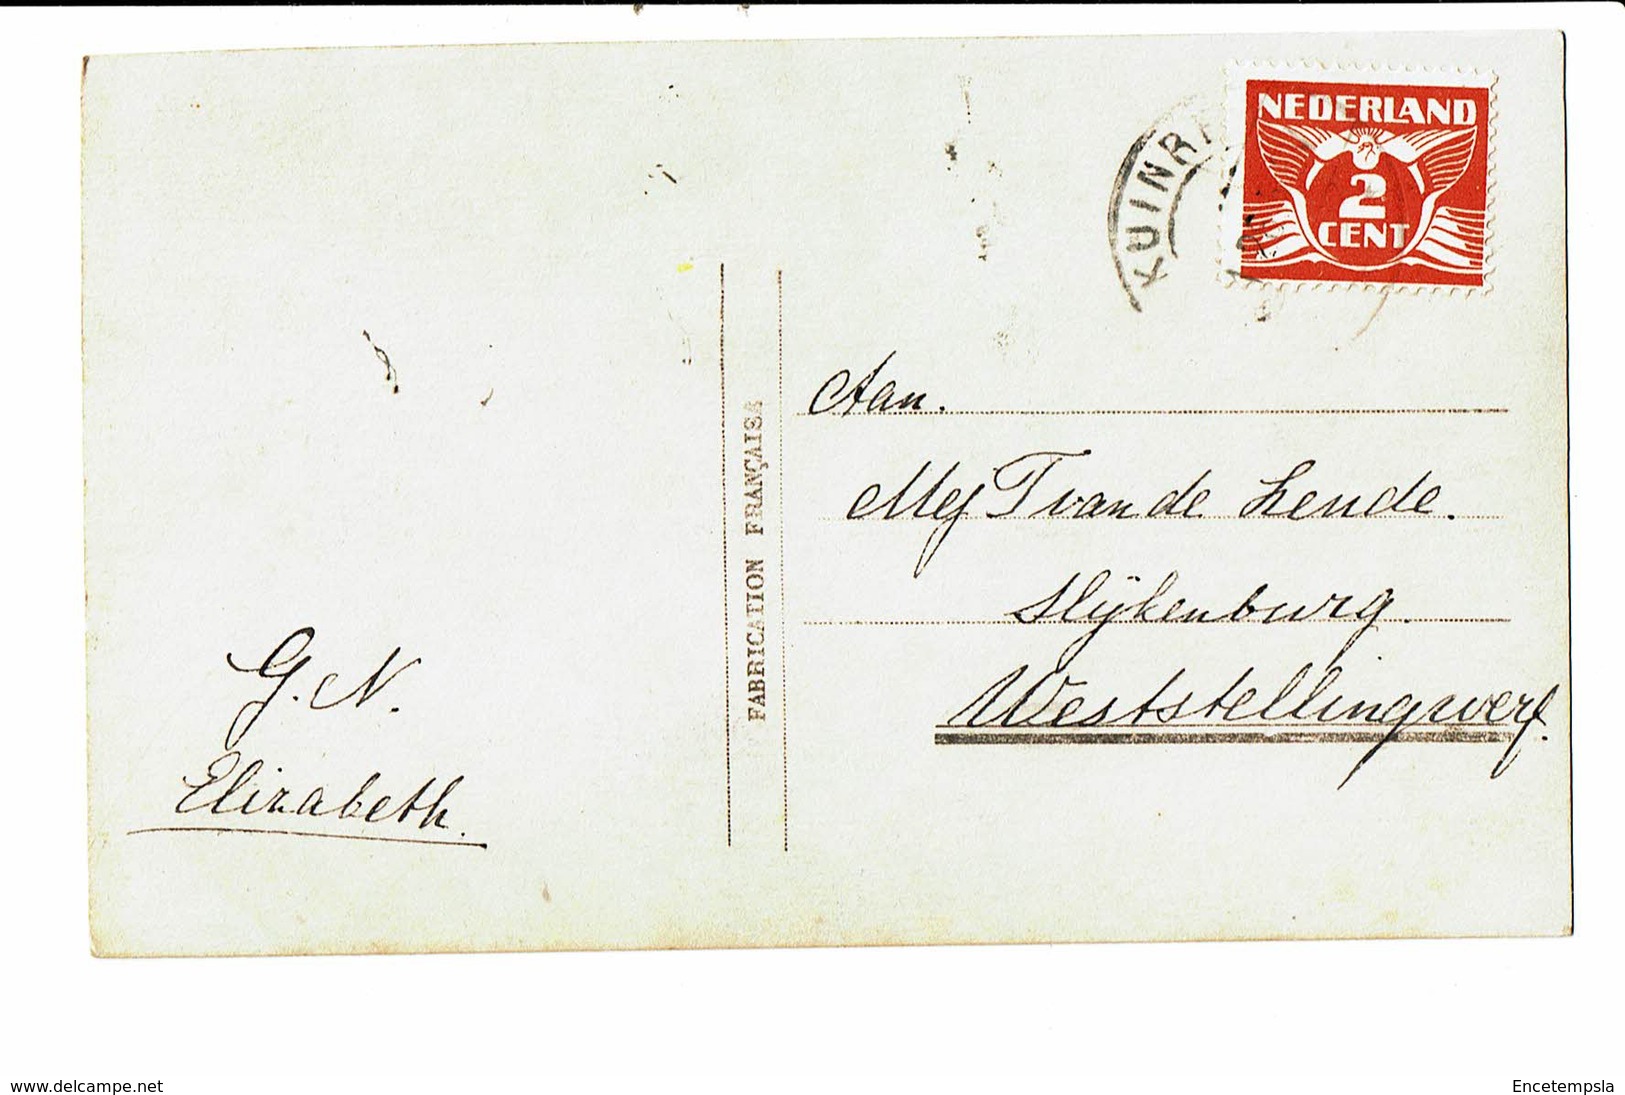 NEDERLAND
2
CENT
KUINR
Aan.
Mej T van de Lende.
Slijkenburg.
Weststellingwerf.
FABRICATION FRANÇAISE
G. N.
Elizabeth.
www.delcampe.net
Encetempsla